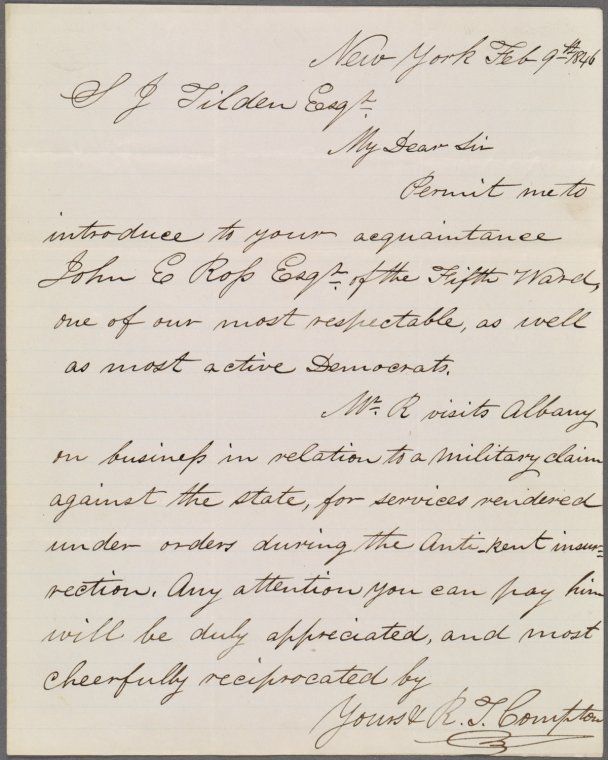 New York Feb 9th 1846
S J Tilden Esqr.
My Dear Sir
Permit me to
introduce to your acquaintance
John E Ross Esqr. of the Fifth Ward,
one of our most respectable, as well
as most active Democrats.
Mr. R visits Albany
on business in relation to a military claim
against the state, for services rendered
under orders during the Anti-rent insur=
rection. Any attention you can pay him
will be duly appreciated, and most
cheerfully reciprocated by
Yours & R. T. Compton